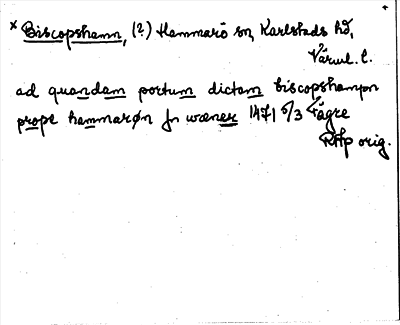 × Biscopshamn, (?) Hammarö sn, Karlstads hd,
Värml. l.
ad quandam portum dictam biscopshampn
prope hammarøn jn wæner 1471 5/3 Lägre
RAp orig.